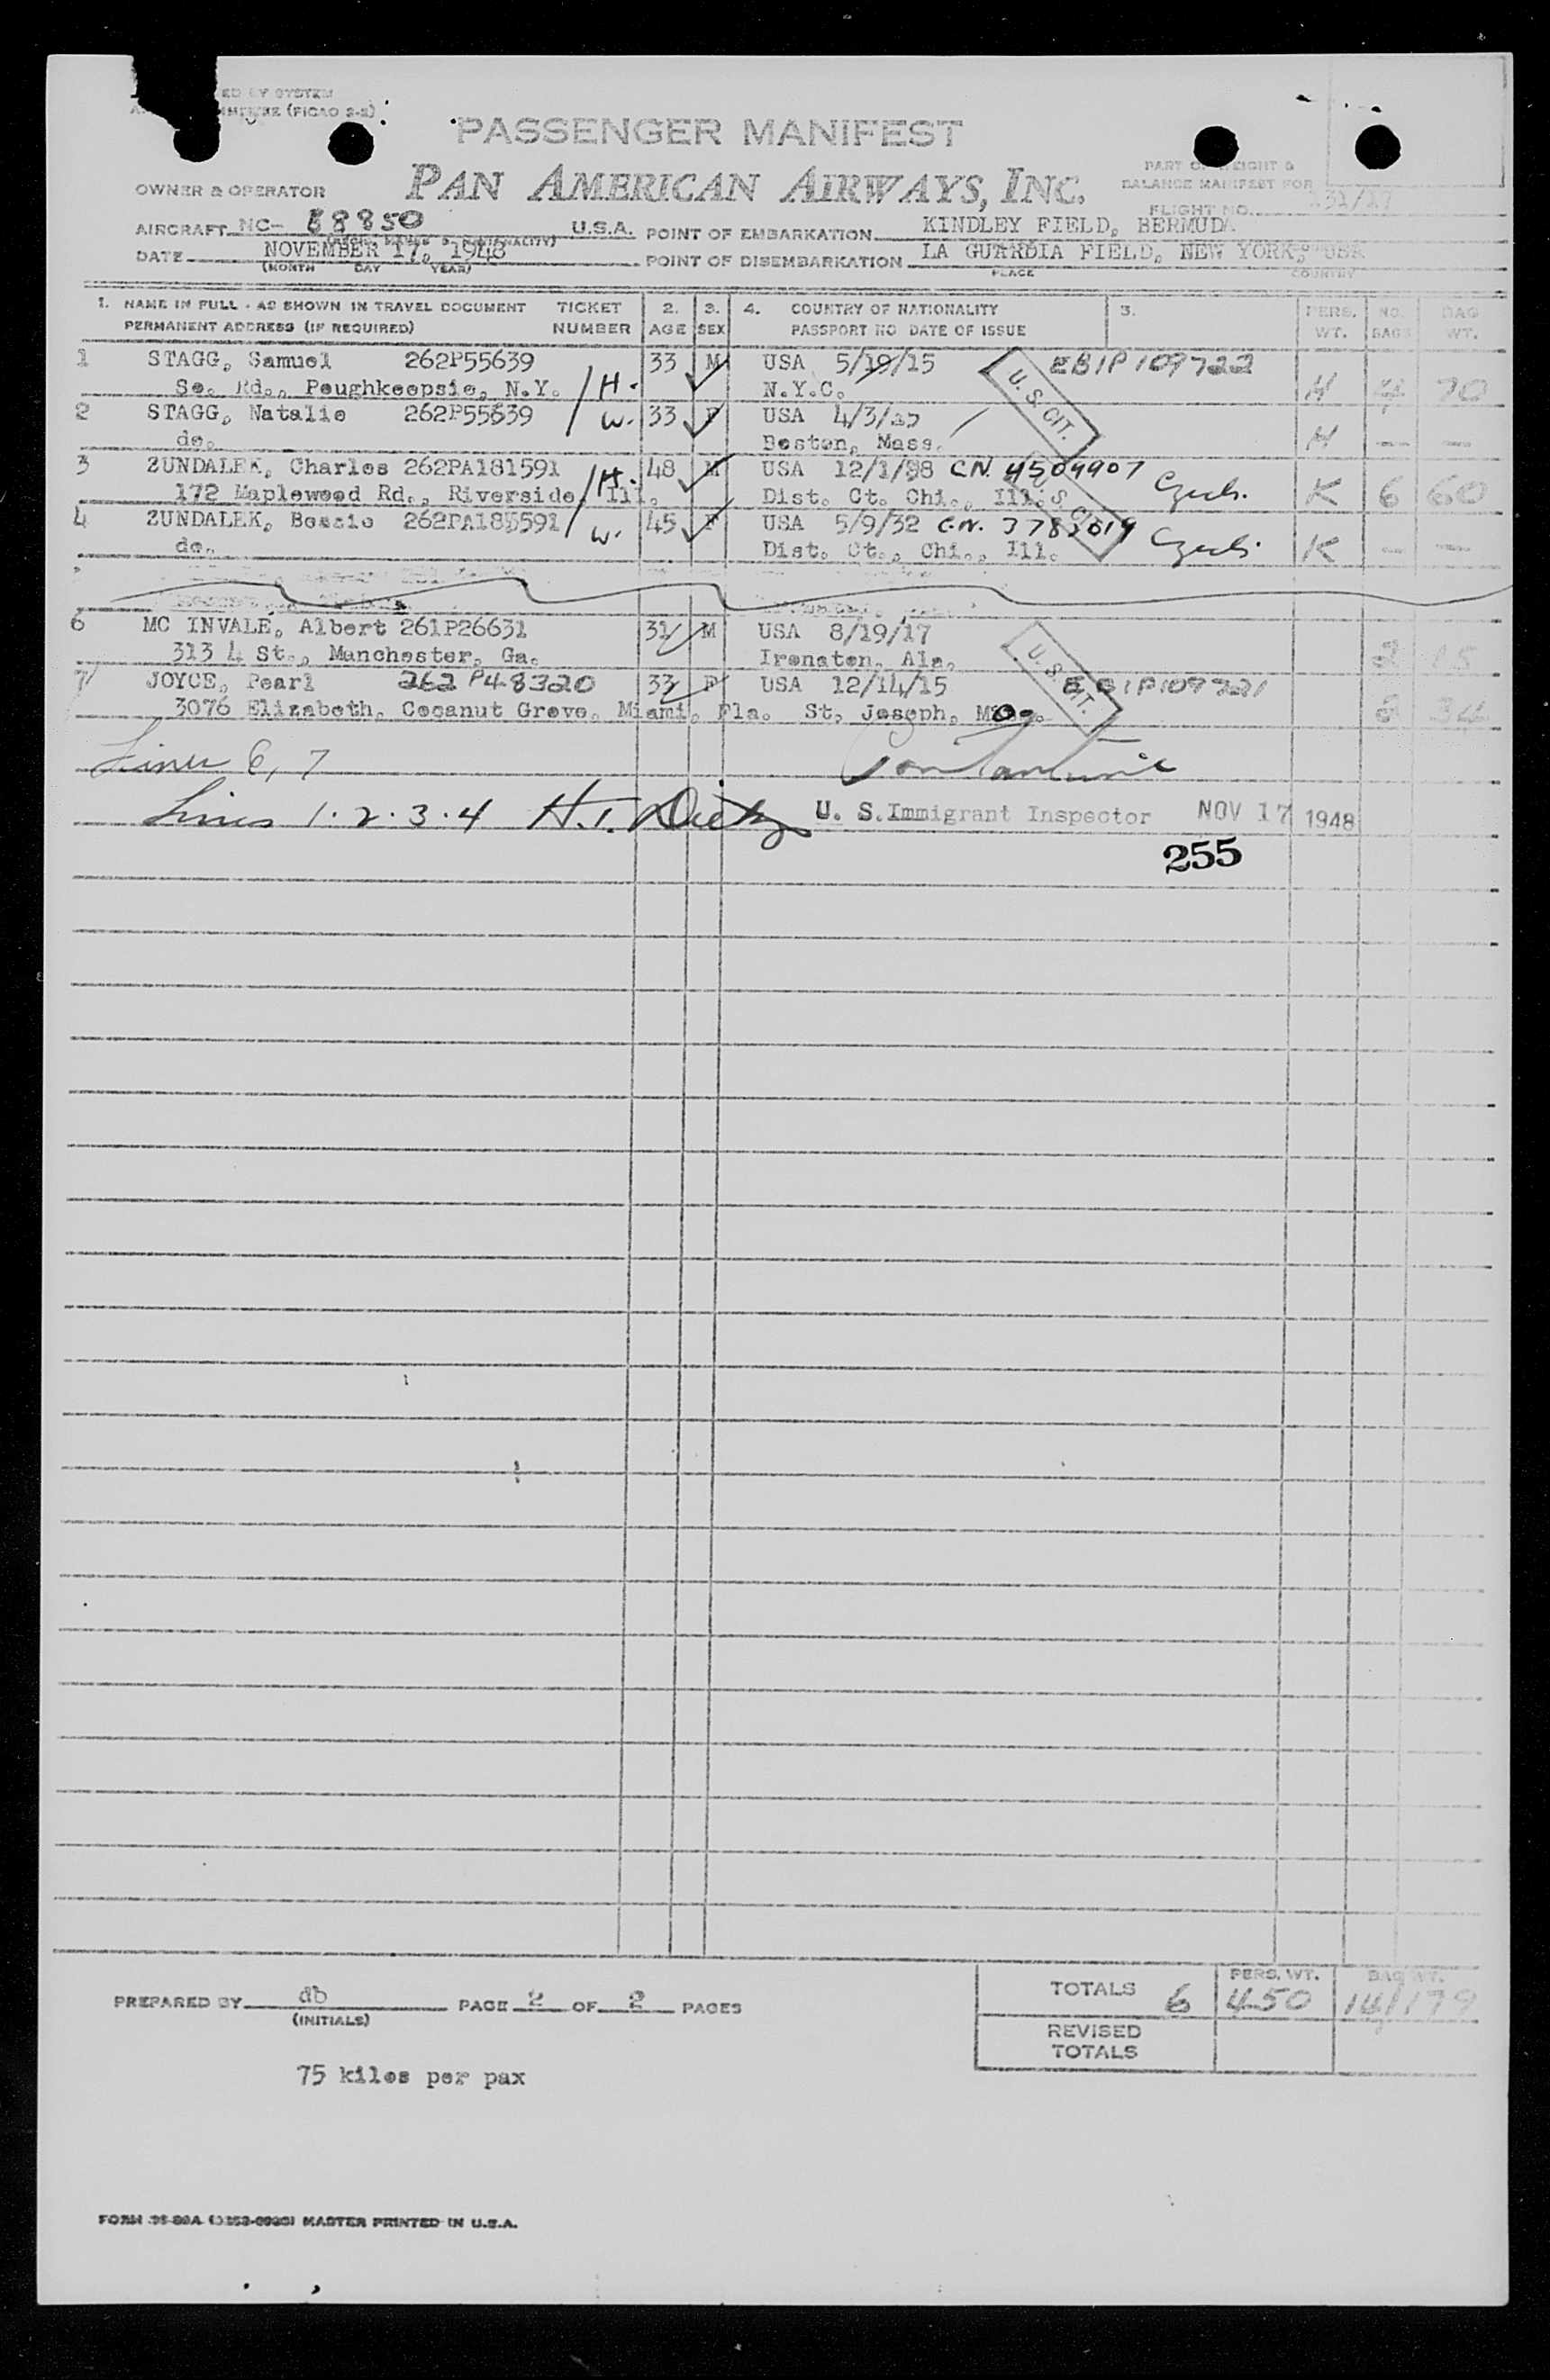 ED BY SYSTEM
(FICAO 2-2)
PASSENGER MANIFEST
PAN AMERICAN AIRWAYS, INC.
PART OF WEIGHT &
BALANCE MANIFEST FOR
FLIGHT NO. 131/17
OWNER & OPERATOR
AIRCRAFT NC- 88850 U.S.A. POINT OF EMBARKATION KINDLEY FIELD, BERMUDA
DATE NOVEMBER 17, 1948 POINT OF DISEMBARKATION LA GUARDIA FIELD, NEW YORK, USA
(MONTH DAY YEAR) PLACE COUNTRY
1. NAME IN FULL - AS SHOWN IN TRAVEL DOCUMENT TICKET 2. 3. 4. COUNTRY OF NATIONALITY 5. PERS. NO. BAG
PERMANENT ADDRESS (IF REQUIRED) NUMBER AGE SEX PASSPORT NO DATE OF ISSUE WT. BAGS WT.
1 STAGG, Samuel 262P55639 33 M USA 5/19/15 EBIP109722
So. Rd., Poughkeepsie, N.Y. H. N.Y.C. U. S. CIT. H 4 70
2 STAGG, Natalie 262P55639 W. 33 F USA 4/3/15
do. Boston, Mass. H — —
3 ZUNDALEK, Charles 262PA181591 H. 48 M USA 12/1/38 C.N. 4504907 Czech.
172 Maplewood Rd., Riverside, Ill. Dist. Ct. Chi., Ill. K 6 60
4 ZUNDALEK, Bessie 262PA185591 W. 45 F USA 5/9/32 C.N. 3783619 Czech.
do. Dist. Ct., Chi., Ill. K — —
6 MC INVALE, Albert 261P26631 31 M USA 8/19/17
313 4 St., Manchester, Ga. Ironaton, Ala. U. S. CIT. 2 15
7 JOYCE, Pearl 262P48320 33 F USA 12/14/15 EBIP109721
3076 Elizabeth, Cocanut Grove, Miami, Fla. St, Joseph, Mo. 2 34
Lines 6, 7
Lines 1.2.3.4 U. S. Immigrant Inspector NOV 17 1948
255
TOTALS 6 PERS. WT. 450 BAG WT. 14/179
PREPARED BY db PAGE 2 OF 2 PAGES
(INITIALS)
REVISED
TOTALS
75 kilos per pax
MASTER PRINTED IN U.S.A.